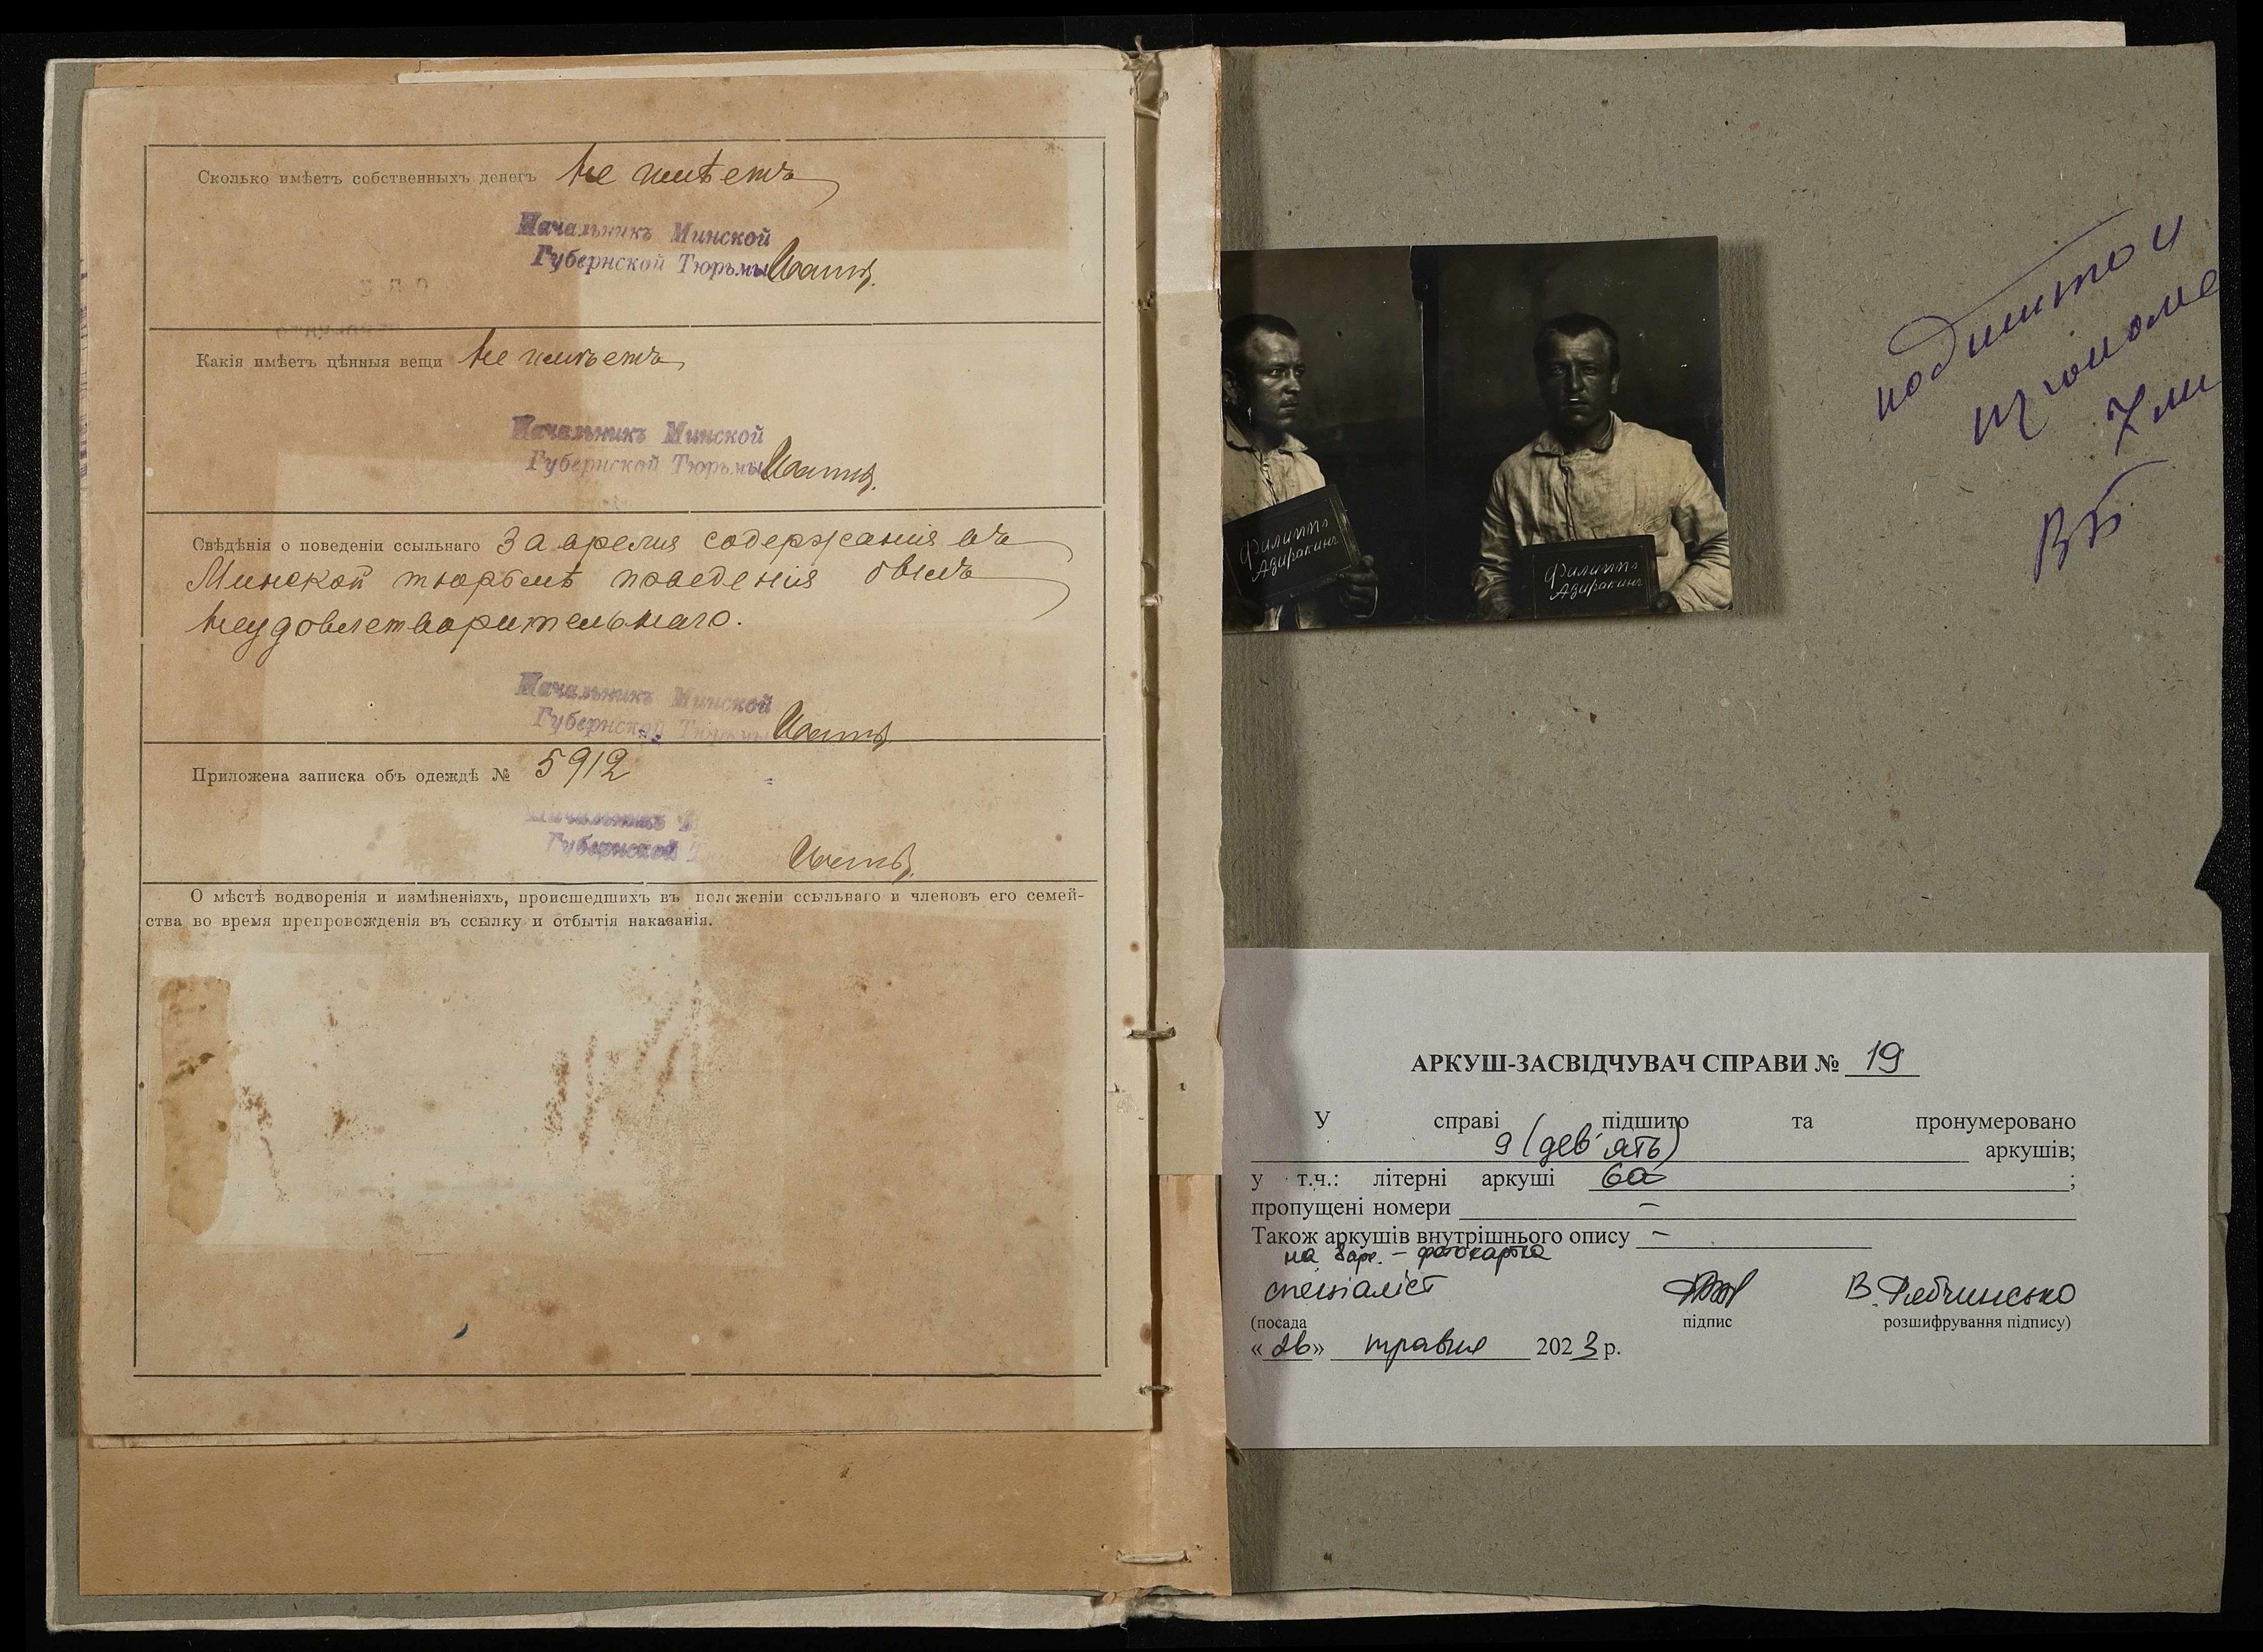 Сколько имѣетъ собственныхъ денегъ не имѣетъ
Начальникъ Минской
Губернской Тюрьмы
Какія имѣетъ цѣнныя вещи не имѣетъ
Начальникъ Минской
Губернской Тюрьмы
Свѣдѣнія о поведеніи ссыльнаго За время содержанія въ
Минской тюрьмѣ поведенія былъ
неудовлетворительнаго.
Начальникъ Минской
Губернской Тюрьмы
Приложена записка объ одеждѣ № 5912
Губернской
О мѣстѣ водворенія и измѣненіяхъ, происшедшихъ въ положеніи ссыльнаго и членовъ его семей-
ства во время препровожденія въ ссылку и отбытія наказанія.
Филиппъ
Азиракинъ
Филиппъ
Азиракинъ
АРКУШ-ЗАСВІДЧУВАЧ СПРАВИ № 19
У справі підшито та пронумеровано
9 (дев'ять) аркушів;
у т.ч.: літерні аркуші 6а ;
пропущені номери –
Також аркушів внутрішнього опису –
на – фотокартка
спеціаліст
(посада підпис розшифрування підпису)
«26» травня 2023 р.